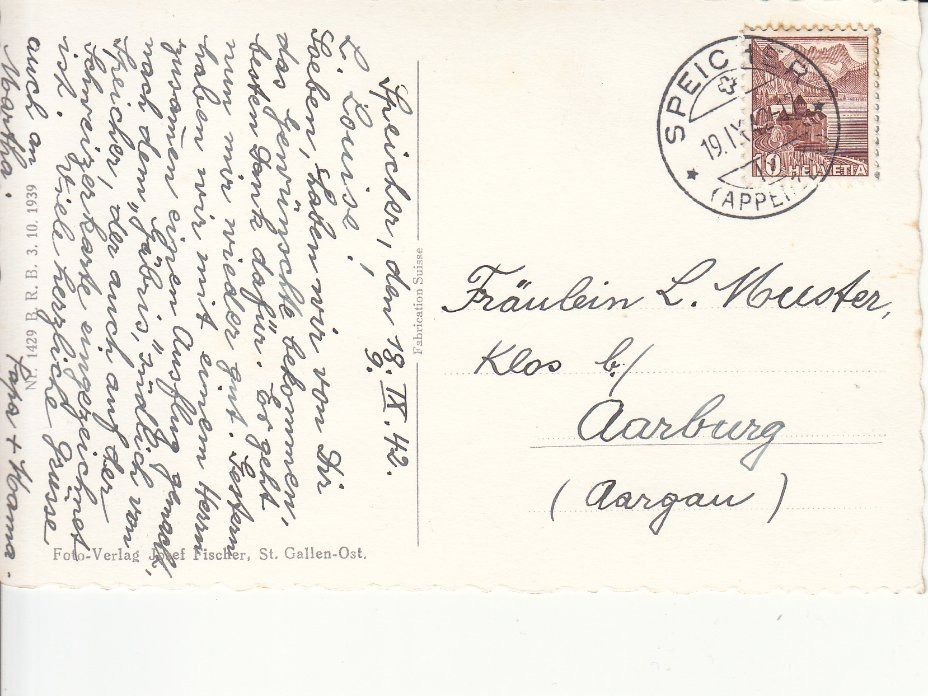 Speicher, den 18. IX. 42.
9.
L. Louise!
Soeben, haben wir von Dir
das Gewünschte bekommen,
besten Dank dafür. Es geht
nun mir wieder gut. Gestern
haben wir mit einem Herrn
zusamen einen Ausflug gemacht,
nach dem „Gäbris", südlich vom
Speicher, der auch auf der
Schweizerkarte eingezeichnet
ist. Viele herzliche Grüsse
auch an
Martha.
Papa + Mama.
Nr. 1429 B. R. B. 3. 10. 1939
Fabrication Suisse
Foto-Verlag Josef Fischer, St. Gallen-Ost.
SPEICHER
19.IX
(APPENZ
10 HELVETIA
Fräulein L. Muster,
Klos b/
Aarburg
(Aargau)